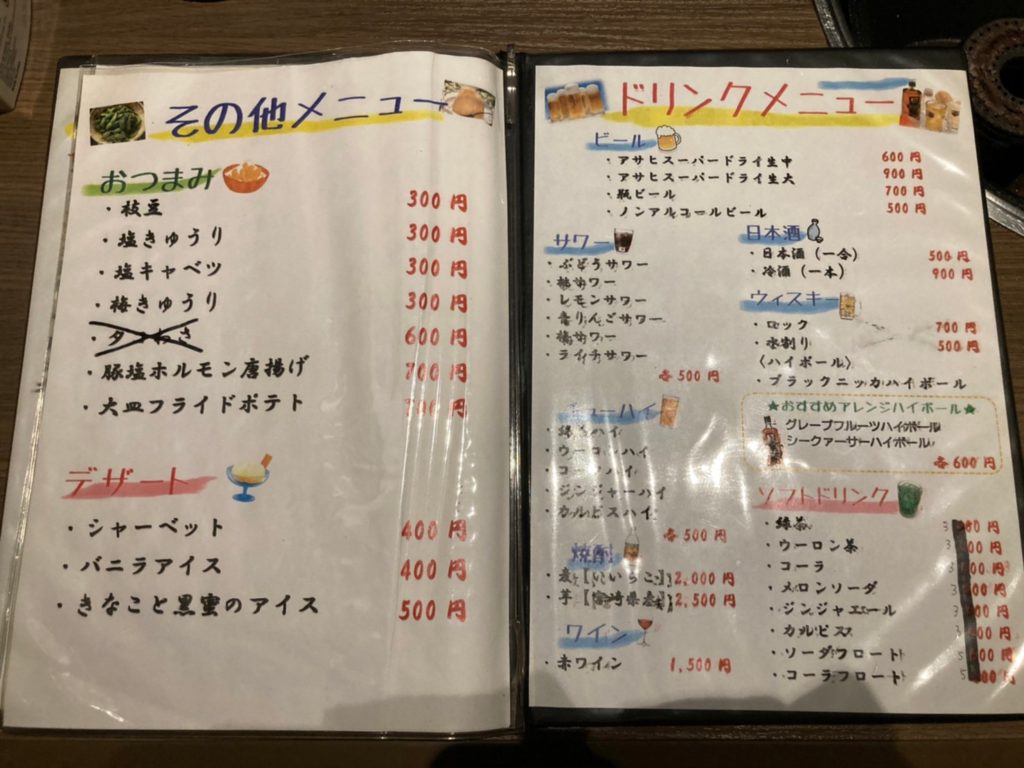 その他メニュー
おつまみ
・枝豆 300円
・塩きゅうり 300円
・塩キャベツ 300円
・梅きゅうり 300円
600円
・豚塩ホルモン唐揚げ 700円
・大皿フライドポテト 700円
デザート
・シャーベット 400円
・バニラアイス 400円
・きなこと黒蜜のアイス 500円
ドリンクメニュー
ビール
・アサヒスーパードライ生中 600円
・アサヒスーパードライ生大 900円
・瓶ビール 700円
・ノンアルコールビール 500円
サワー
・ぶどうサワー
・桃サワー
・レモンサワー
・青りんごサワー
・梅サワー
・ライチサワー
各500円
チューハイ
・緑茶ハイ
・ウーロンハイ
・コークハイ
・ジンジャーハイ
・カルピスハイ
各500円
焼酎
・麦【いいちこ】 2,000円
・芋【宮崎県産】 2,500円
ワイン
・赤ワイン 1,500円
日本酒
・日本酒（一合） 500円
・冷酒（一本） 900円
ウィスキー
・ロック 700円
・水割り 500円
〈ハイボール〉
・ブラックニッカハイボール
★おすすめアレンジハイボール★
グレープフルーツハイボール
シークァーサーハイボール
各600円
ソフトドリンク
・緑茶
・ウーロン茶
・コーラ
・メロンソーダ
・ジンジャエール
・カルピス
・ソーダフロート
・コーラフロート